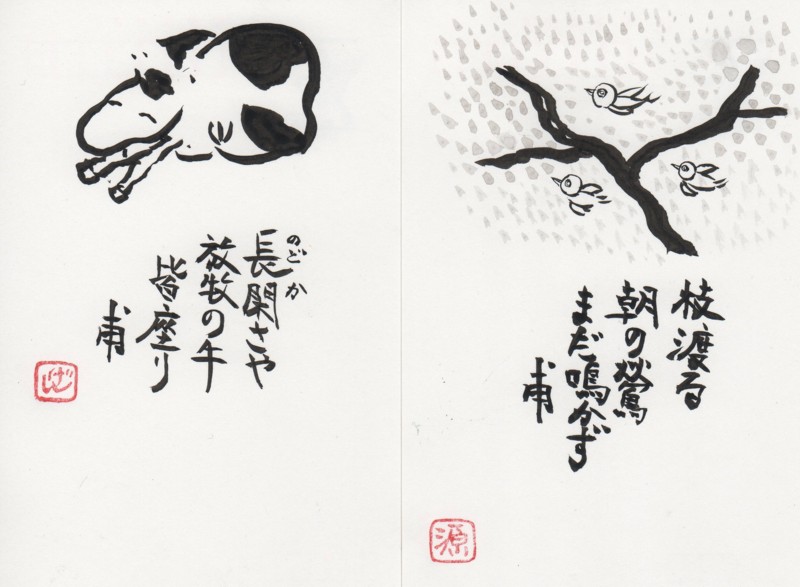 枝渡る
朝の鶯
まだ鳴かず
甫
源
のどか
長閑さや
放牧の牛
皆座り
甫